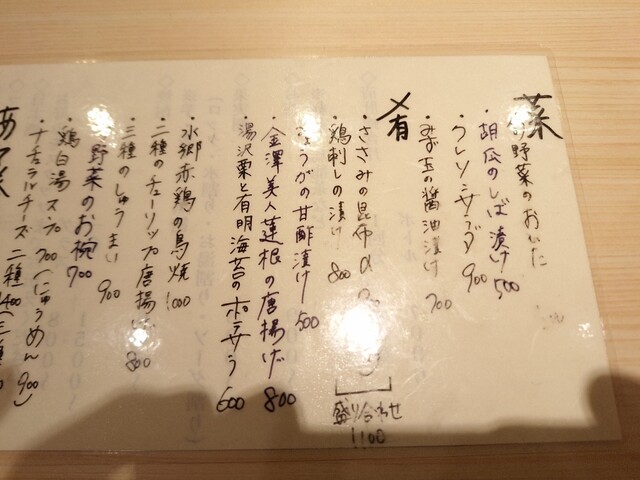 菜
野菜のおひた
・胡瓜のしば漬け 500
・クレソンサラダ 900
・みず玉の醤油漬け 700
肴
・ささみの昆布〆
・鶏刺しの漬け 800
盛り合わせ 1100
ょうがの甘酢漬け 500
・金澤美人蓮根の唐揚げ 800
・湯沢栗と有明海苔のポテサラ 600
・水郷赤鶏の鳥焼 1000
・二種のチューリップ唐揚げ 800
・三種のしゅうまい 900
野菜のお椀 700
鶏白湯スープ 700(にゅうめん 900)
・ナチュラルチーズ 二種 400(三種